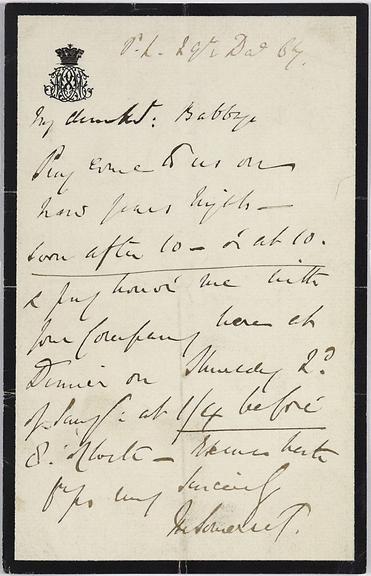 P.L. 29th Dec 67.
My dear Mr: Babbage
Pray come to us on
New Years Night —
soon after 10 — or at 10.
& pray honor me with
your Company here at
Dinner on Thursday 2d
of Jany: at 1/4 before
8. o'Clock — Excuse haste
very sincerely
M Somerset.